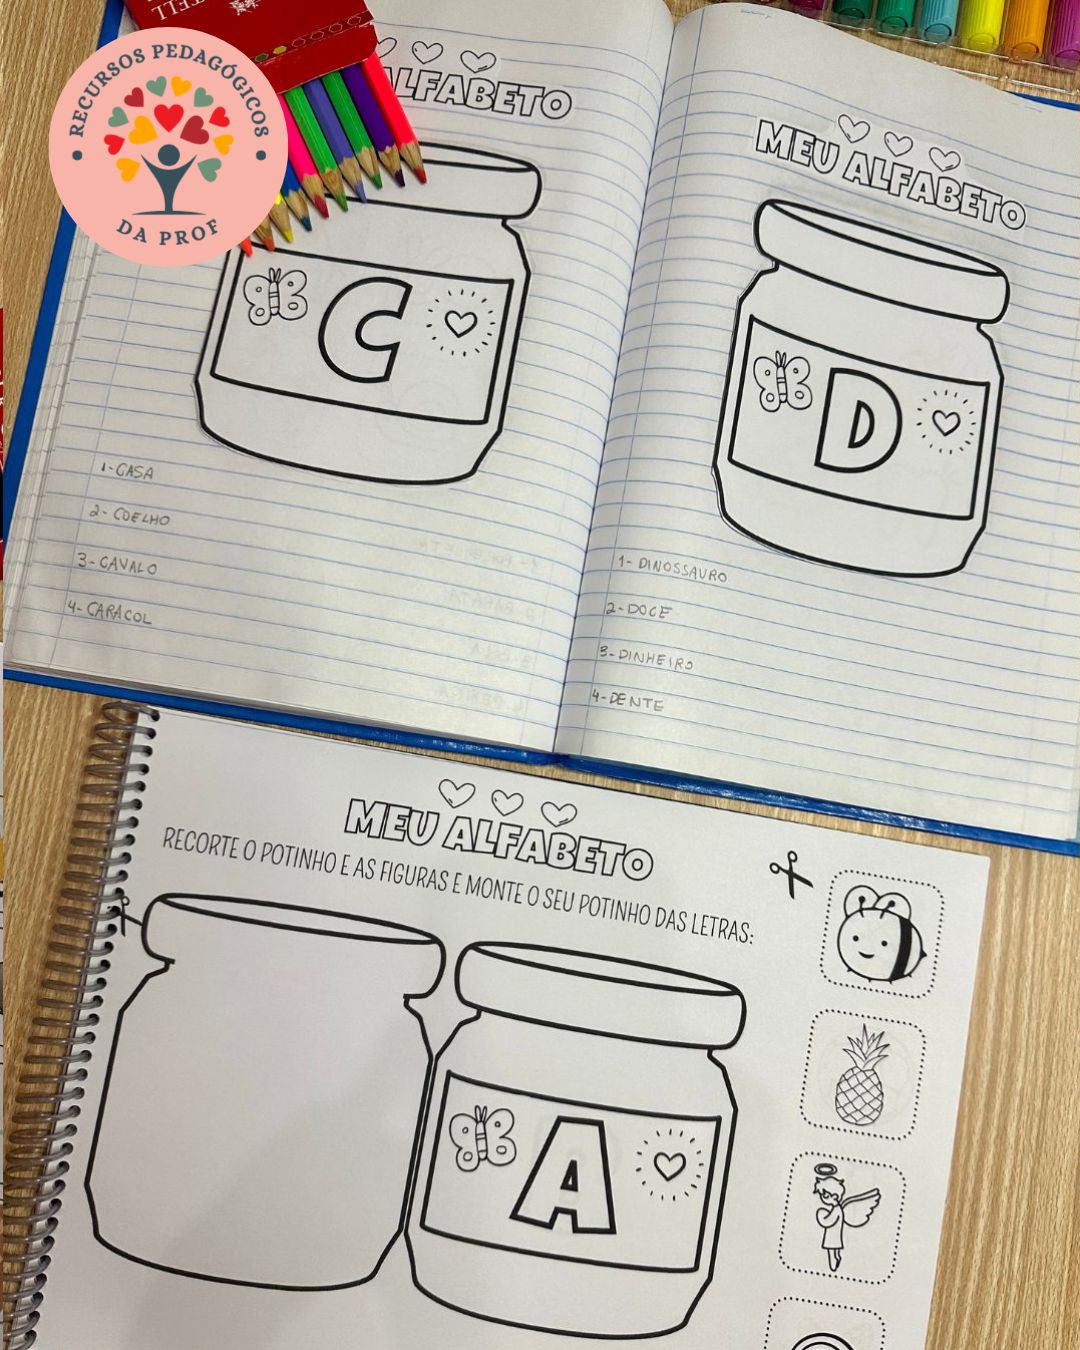 RECURSOS PEDAGÓGICOS
DA PROF
ALFABETO
C
1-CASA
2-COELHO
3-CAVALO
4-CARACOL
MEU ALFABETO
D
1-DINOSSAURO
2-DOCE
3-DINHEIRO
4-DENTE
MEU ALFABETO
RECORTE O POTINHO E AS FIGURAS E MONTE O SEU POTINHO DAS LETRAS:
A